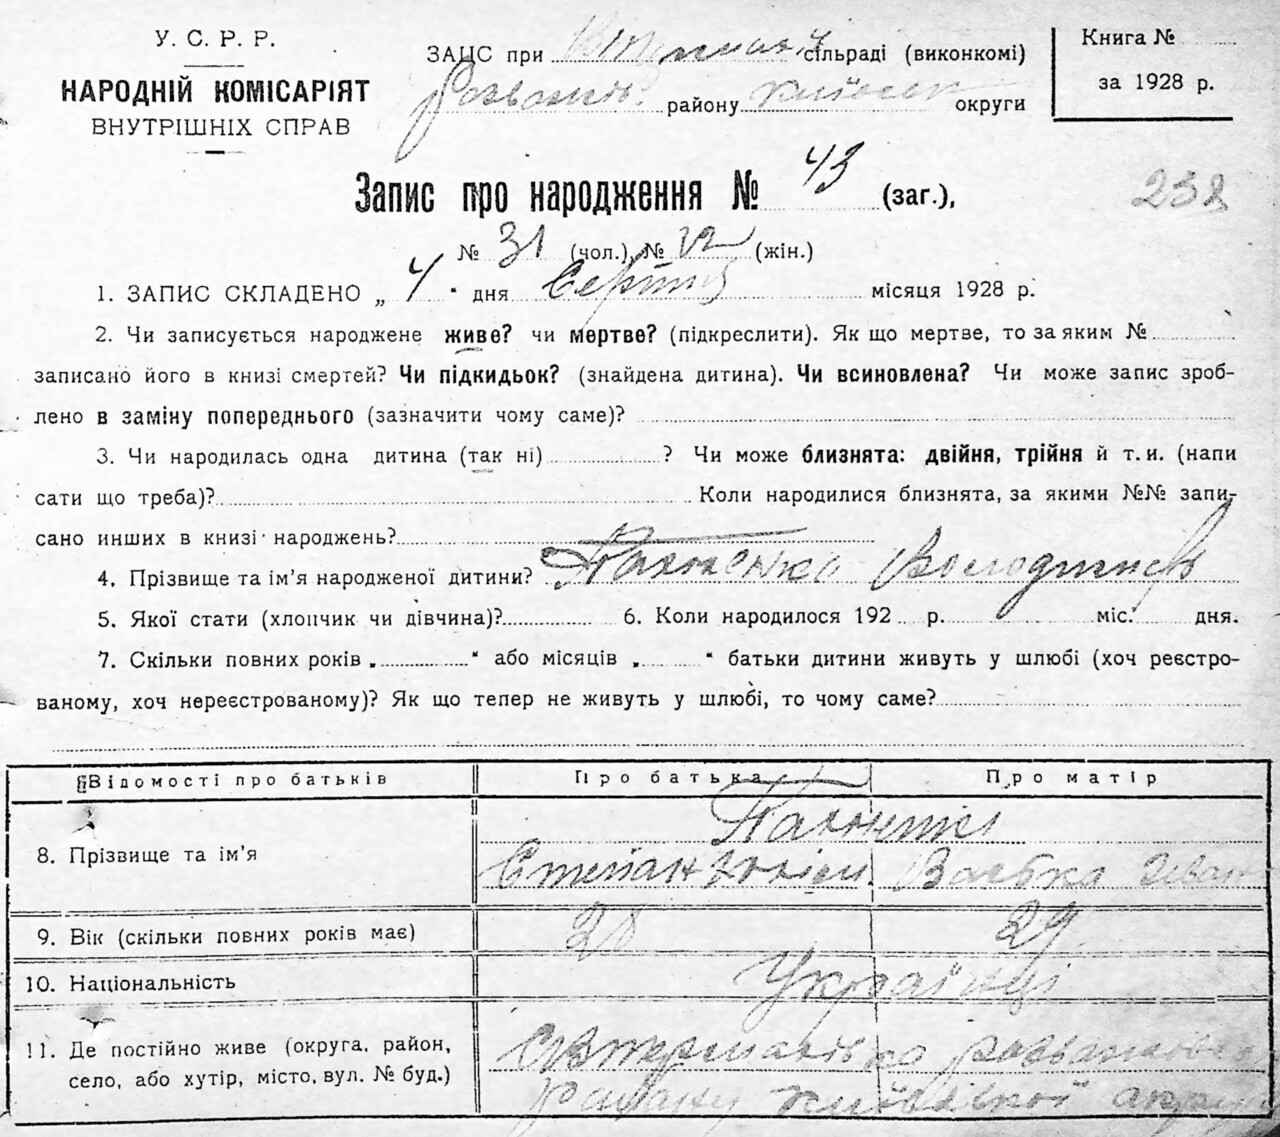 У. С. Р. Р.
НАРОДНІЙ КОМІСАРІЯТ
ВНУТРІШНІХ СПРАВ
ЗАЦС при сільраді (виконкомі)
району округи
Книга №
за 1928 р.
Запис про народження № 43 (заг.),
238
№ 31 (чол.), № 12 (жін.)
1. ЗАПИС СКЛАДЕНО „ 4 “ дня Серпня місяця 1928 р.
2. Чи записується народжене живе? чи мертве? (підкреслити). Як що мертве, то за яким №
записано його в книзі смертей? Чи підкидьок? (знайдена дитина). Чи всиновлена? Чи може запис зроб-
лено в заміну попереднього (зазначити чому саме)?
3. Чи народилась одна дитина (так ні) ? Чи може близнята: двійня, трійня й т. и. (напи
сати що треба)? Коли народилися близнята, за якими №№ запи-
сано инших в книзі народжень?
4. Прізвище та ім’я народженої дитини? Володимир
5. Якої стати (хлопчик чи дівчина)? 6. Коли народилося 192 р. міс. дня.
7. Скільки повних років „ “ або місяців „ “ батьки дитини живуть у шлюбі (хоч реєстро-
ваному, хоч нереєстрованому)? Як що тепер не живуть у шлюбі, то чому саме?
Відомості про батьків Про батька Про матір
8. Прізвище та ім’я
Степан Іван
9. Вік (скільки повних років має) 28 29
10. Національність Українці
11. Де постійно живе (округа, район,
село, або хутір, місто, вул. № буд.)
району Київської округи